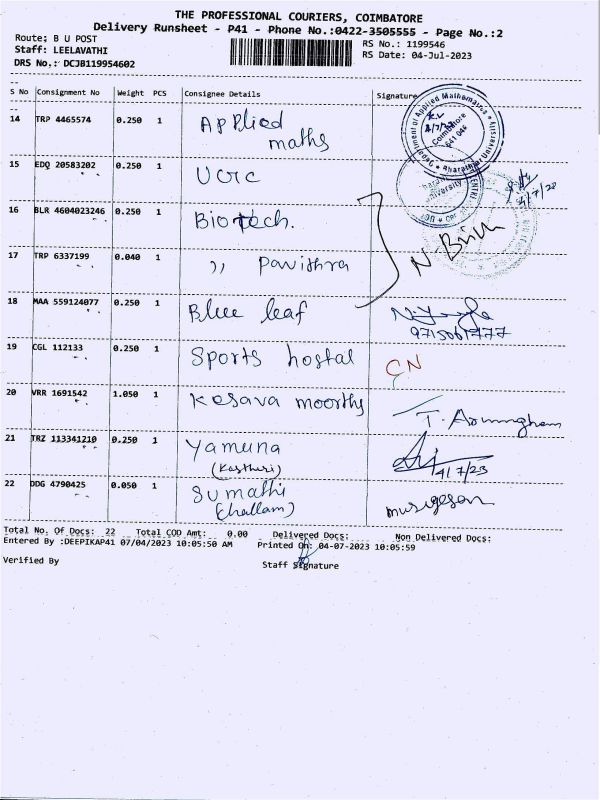 THE PROFESSIONAL COURIERS, COIMBATORE
Delivery Runsheet - P41 - Phone No.:0422-3505555 - Page No.:2
Route: B U POST
RS No.: 1199546
Staff: LEELAVATHI
RS Date: 04-Jul-2023
DRS No.: DCJB119954602
S No Consignment No Weight PCS Consignee Details Signature
14 TRP 4465574 0.250 1 Applied
maths
Department of Applied Mathematics
Coimbatore
641 046
Bharathiar University
15 EDQ 20583202 0.250 1 UGC
University
4/7/23
16 BLR 4604023246 0.250 1 Biotech.
17 TRP 6337199 0.040 1 ,, Pavithra
18 MAA 559124077 0.250 1 Blue leaf
19 CGL 112133 0.250 1 Sports hostal CN
20 VRR 1691542 1.050 1 Kesava moorthy
T. Arumugham
21 TRZ 113341210 0.250 1 Yamuna
(Kasthuri) 4/7/23
22 DDG 4790425 0.050 1 Sumathi
(challam) murugesan
Total No. Of Docs: 22 Total COD Amt: 0.00 Delivered Docs: Non Delivered Docs:
Entered By :DEEPIKAP41 07/04/2023 10:05:50 AM Printed On: 04-07-2023 10:05:59
Verified By
Staff Signature